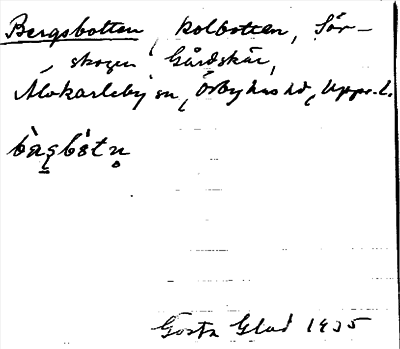 Bergsbotten, kolbotten, Sör-
skogen Gårdskär,
Älvkarleby sn, Örbyhus hd, Upps. l.
bàgbòtn
Gösta Glad 1935